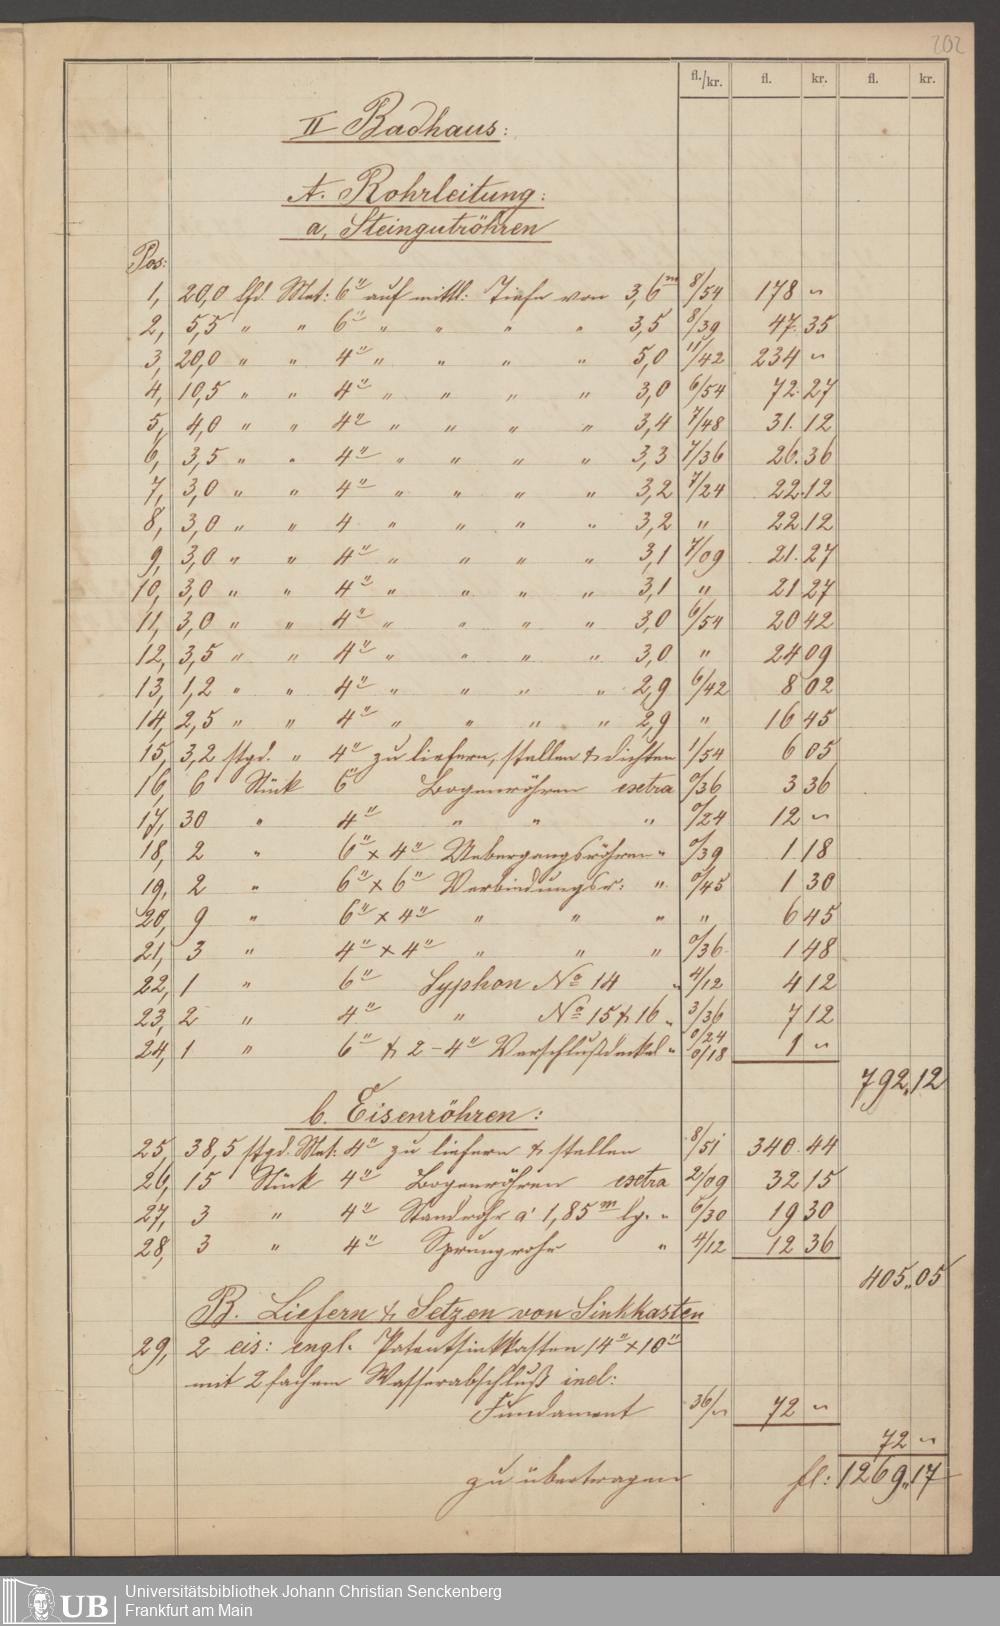 202
fl./kr. fl. kr. fl. kr.
II Badhaus:
A. Rohrleitung:
a, Steingutröhren
Pos:
1, 20,0 lfd. Met: 6" auf mittl: Tiefe von 3,6m 8/54 178 "
2, 5,5 " " 6" " " " " 3,5 8/39 47. 35
3, 20,0 " " 4" " " " " 5,0 11/42 234 "
4, 10,5 " " 4" " " " " 3,0 6/54 72. 27
5, 4,0 " " 4" " " " " 3,4 7/48 31. 12
6, 3,5 " " 4" " " " " 3,3 7/36 26. 36
7, 3,0 " " 4" " " " " 3,2 7/24 22. 12
8, 3,0 " " 4 " " " " 3,2 " 22. 12
9, 3,0 " " 4" " " " " 3,1 7/09 21. 27
10, 3,0 " " 4" " " " " 3,1 " 21 27
11, 3,0 " " 4" " " " " 3,0 6/54 20 42
12, 3,5 " " 4" " " " " 3,0 " 24 09
13, 1,2 " " 4" " " " " 2,9 6/42 8 02
14, 2,5 " " 4" " " " " 2,9 " 16 45
15, 3,2 stgd. " 4" zu liefern, stellen & dichten 1/54 6 05
16, 6 Stück 6" Bogenröhren extra 0/36 3 36
17, 30 " 4" " " " 0/24 12 "
18, 2 " 6" x 4" Uebergangsröhren " 0/39 1 18
19, 2 " 6" x 6" Verbindungsr: " 0/45 1 30
20, 9 " 6" x 4" " " " " 6 45
21, 3 " 4" x 4" " " " 0/36 1 48
22, 1 " 6" Syphon No 14 " 4/12 4 12
23, 2 " 4" " No 15 & 16 " 3/36 7 12
24, 1 " 6" & 2 - 4" Verschlußdeckel " 0/24 0/18 1 "
792,,12
b. Eisenröhren:
25, 38,5 stgd. Met: 4" zu liefern & stellen 8/51 340. 44
26, 15 Stück 4" Bogenröhren extra 2/09 32 15
27, 3 " 4" Standrohr a' 1,85m lg. " 6/30 19 30
28, 3 " 4" Sprungrohr " 4/12 12 36
405,,05
B. Liefern & Setzen von Sinkkasten
29, 2 eis: engl. Patentsinkkasten 14" x 10"
mit 2 fachem Wasserabschluß incl:
Fundament 36/" 72 "
72 "
zu übertragen fl: 1269,,17
UB Universitätsbibliothek Johann Christian Senckenberg
Frankfurt am Main